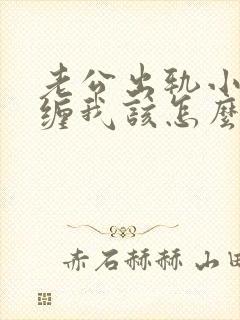 老公出轨小
缠我该怎麼
赤石赫赫 山田